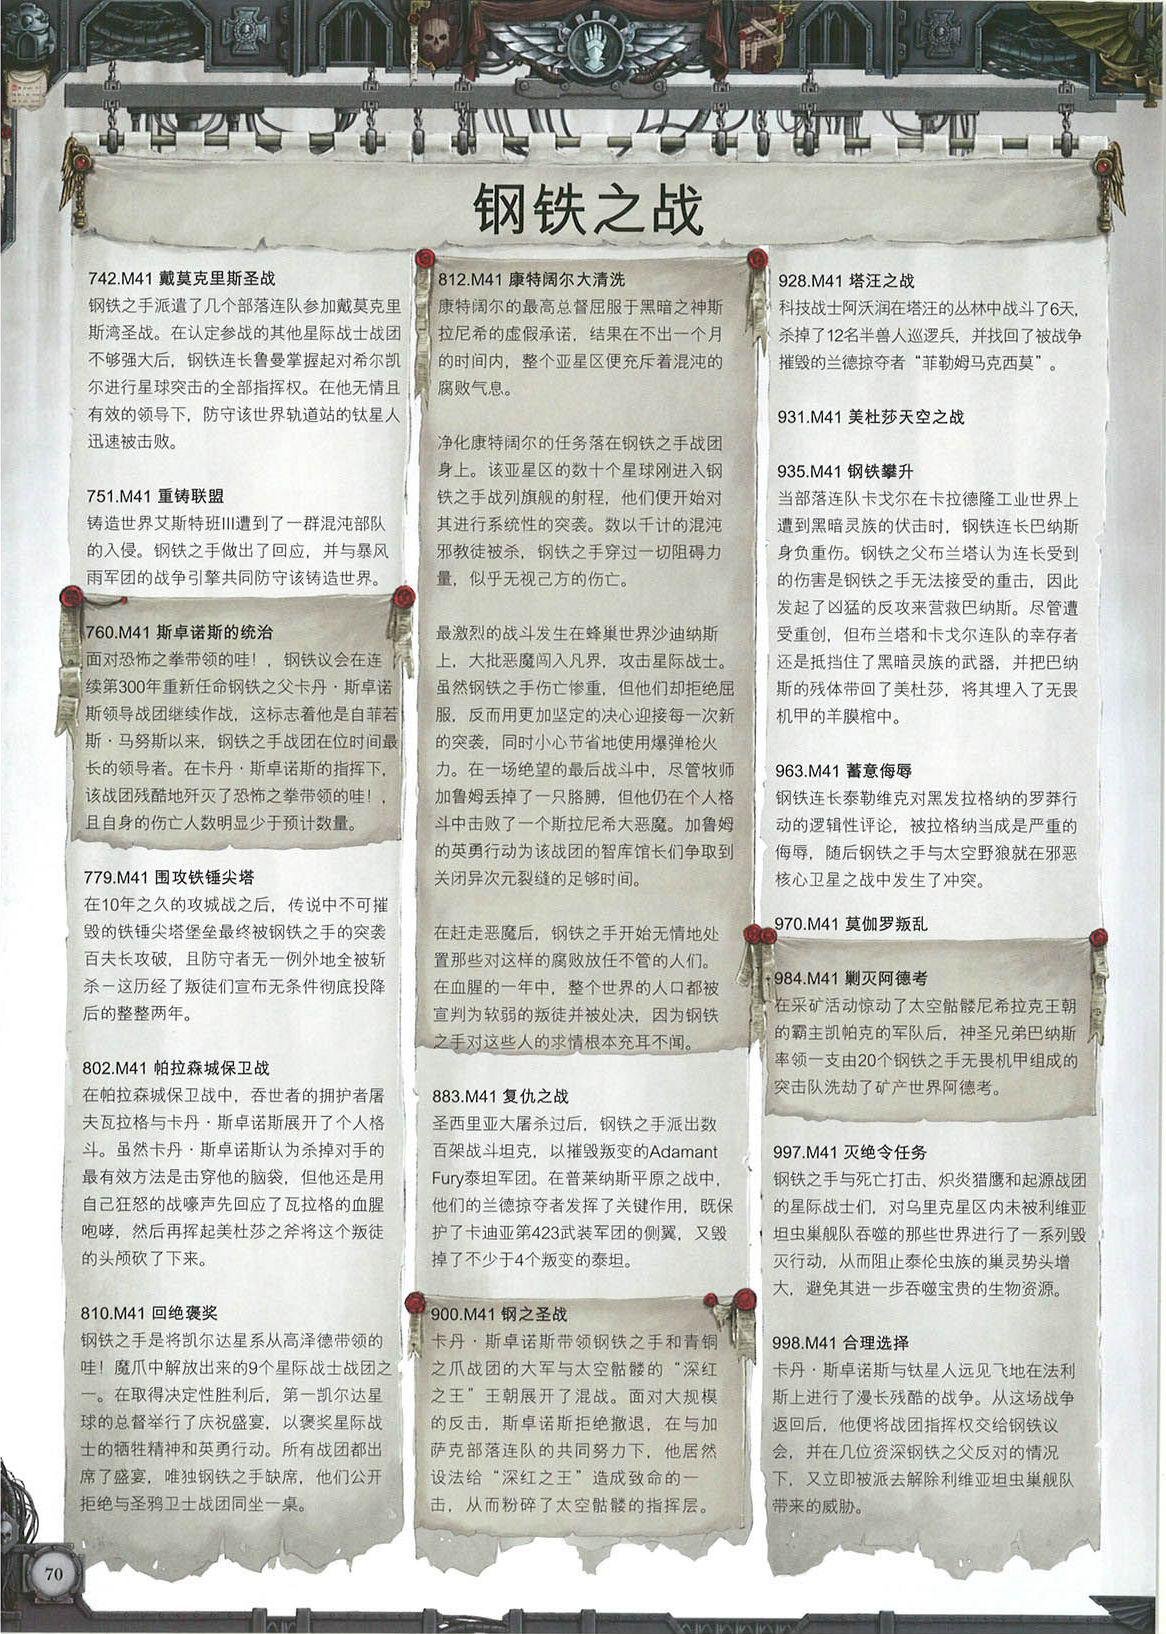 钢铁之战
742.M41 戴莫克里斯圣战
钢铁之手派遣了几个部落连队参加戴莫克里
斯湾圣战。在认定参战的其他星际战士战团
不够强大后，钢铁连长鲁曼掌握起对希尔凯
尔进行星球突击的全部指挥权。在他无情且
有效的领导下，防守该世界轨道站的钛星人
迅速被击败。
751.M41 重铸联盟
铸造世界艾斯特班III遭到了一群混沌部队
的入侵。钢铁之手做出了回应，并与暴风
雨军团的战争引擎共同防守该铸造世界。
760.M41 斯卓诺斯的统治
面对恐怖之拳带领的哇！，钢铁议会在连
续第300年重新任命钢铁之父卡丹·斯卓诺
斯领导战团继续作战，这标志着他是自菲若
斯·马努斯以来，钢铁之手战团在位时间最
长的领导者。在卡丹·斯卓诺斯的指挥下，
该战团残酷地歼灭了恐怖之拳带领的哇！，
且自身的伤亡人数明显少于预计数量。
779.M41 围攻铁锤尖塔
在10年之久的攻城战之后，传说中不可摧
毁的铁锤尖塔堡垒最终被钢铁之手的突袭
百夫长攻破，且防守者无一例外地全被斩
杀－这历经了叛徒们宣布无条件彻底投降
后的整整两年。
802.M41 帕拉森城保卫战
在帕拉森城保卫战中，吞世者的拥护者屠
夫瓦拉格与卡丹·斯卓诺斯展开了个人格
斗。虽然卡丹·斯卓诺斯认为杀掉对手的
最有效方法是击穿他的脑袋，但他还是用
自己狂怒的战嚎声先回应了瓦拉格的血腥
咆哮，然后再挥起美杜莎之斧将这个叛徒
的头颅砍了下来。
810.M41 回绝褒奖
钢铁之手是将凯尔达星系从高泽德带领的
哇！魔爪中解放出来的9个星际战士战团之
一。在取得决定性胜利后，第一凯尔达星
球的总督举行了庆祝盛宴，以褒奖星际战
士的牺牲精神和英勇行动。所有战团都出
席了盛宴，唯独钢铁之手缺席，他们公开
拒绝与圣鸦卫士战团同坐一桌。
812.M41 康特阔尔大清洗
康特阔尔的最高总督屈服于黑暗之神斯
拉尼希的虚假承诺，结果在不出一个月
的时间内，整个亚星区便充斥着混沌的
腐败气息。
净化康特阔尔的任务落在钢铁之手战团
身上。该亚星区的数十个星球刚进入钢
铁之手战列旗舰的射程，他们便开始对
其进行系统性的突袭。数以千计的混沌
邪教徒被杀，钢铁之手穿过一切阻碍力
量，似乎无视己方的伤亡。
最激烈的战斗发生在蜂巢世界沙迪纳斯
上，大批恶魔闯入凡界，攻击星际战士。
虽然钢铁之手伤亡惨重，但他们却拒绝屈
服，反而用更加坚定的决心迎接每一次新
的突袭，同时小心节省地使用爆弹枪火
力。在一场绝望的最后战斗中，尽管牧师
加鲁姆丢掉了一只胳膊，但他仍在个人格
斗中击败了一个斯拉尼希大恶魔。加鲁姆
的英勇行动为该战团的智库馆长们争取到
关闭异次元裂缝的足够时间。
在赶走恶魔后，钢铁之手开始无情地处
置那些对这样的腐败放任不管的人们。
在血腥的一年中，整个世界的人口都被
宣判为软弱的叛徒并被处决，因为钢铁
之手对这些人的求情根本充耳不闻。
883.M41 复仇之战
圣西里亚大屠杀过后，钢铁之手派出数
百架战斗坦克，以摧毁叛变的Adamant
Fury泰坦军团。在普莱纳斯平原之战中，
他们的兰德掠夺者发挥了关键作用，既保
护了卡迪亚第423武装军团的侧翼，又毁
掉了不少于4个叛变的泰坦。
900.M41 钢之圣战
卡丹·斯卓诺斯带领钢铁之手和青铜
之爪战团的大军与太空骷髅的“深红
之王”王朝展开了混战。面对大规模
的反击，斯卓诺斯拒绝撤退，在与加
萨克部落连队的共同努力下，他居然
设法给“深红之王”造成致命的一
击，从而粉碎了太空骷髅的指挥层。
928.M41 塔汪之战
科技战士阿沃润在塔汪的丛林中战斗了6天，
杀掉了12名半兽人巡逻兵，并找回了被战争
摧毁的兰德掠夺者“菲勒姆马克西莫”。
931.M41 美杜莎天空之战
935.M41 钢铁攀升
当部落连队卡戈尔在卡拉德隆工业世界上
遭到黑暗灵族的伏击时，钢铁连长巴纳斯
身负重伤。钢铁之父布兰塔认为连长受到
的伤害是钢铁之手无法接受的重击，因此
发起了凶猛的反攻来营救巴纳斯。尽管遭
受重创，但布兰塔和卡戈尔连队的幸存者
还是抵挡住了黑暗灵族的武器，并把巴纳
斯的残体带回了美杜莎，将其埋入了无畏
机甲的羊膜棺中。
963.M41 蓄意侮辱
钢铁连长泰勒维克对黑发拉格纳的罗莽行
动的逻辑性评论，被拉格纳当成是严重的
侮辱，随后钢铁之手与太空野狼就在邪恶
核心卫星之战中发生了冲突。
970.M41 莫伽罗叛乱
984.M41 剿灭阿德考
在采矿活动惊动了太空骷髅尼希拉克王朝
的霸主凯帕克的军队后，神圣兄弟巴纳斯
率领一支由20个钢铁之手无畏机甲组成的
突击队洗劫了矿产世界阿德考。
997.M41 灭绝令任务
钢铁之手与死亡打击、炽炎猎鹰和起源战团
的星际战士们，对乌里克星区内未被利维亚
坦虫巢舰队吞噬的那些世界进行了一系列毁
灭行动，从而阻止泰伦虫族的巢灵势头增
大，避免其进一步吞噬宝贵的生物资源。
998.M41 合理选择
卡丹·斯卓诺斯与钛星人远见飞地在法利
斯上进行了漫长残酷的战争。从这场战争
返回后，他便将战团指挥权交给钢铁议
会，并在几位资深钢铁之父反对的情况
下，又立即被派去解除利维亚坦虫巢舰队
带来的威胁。
70